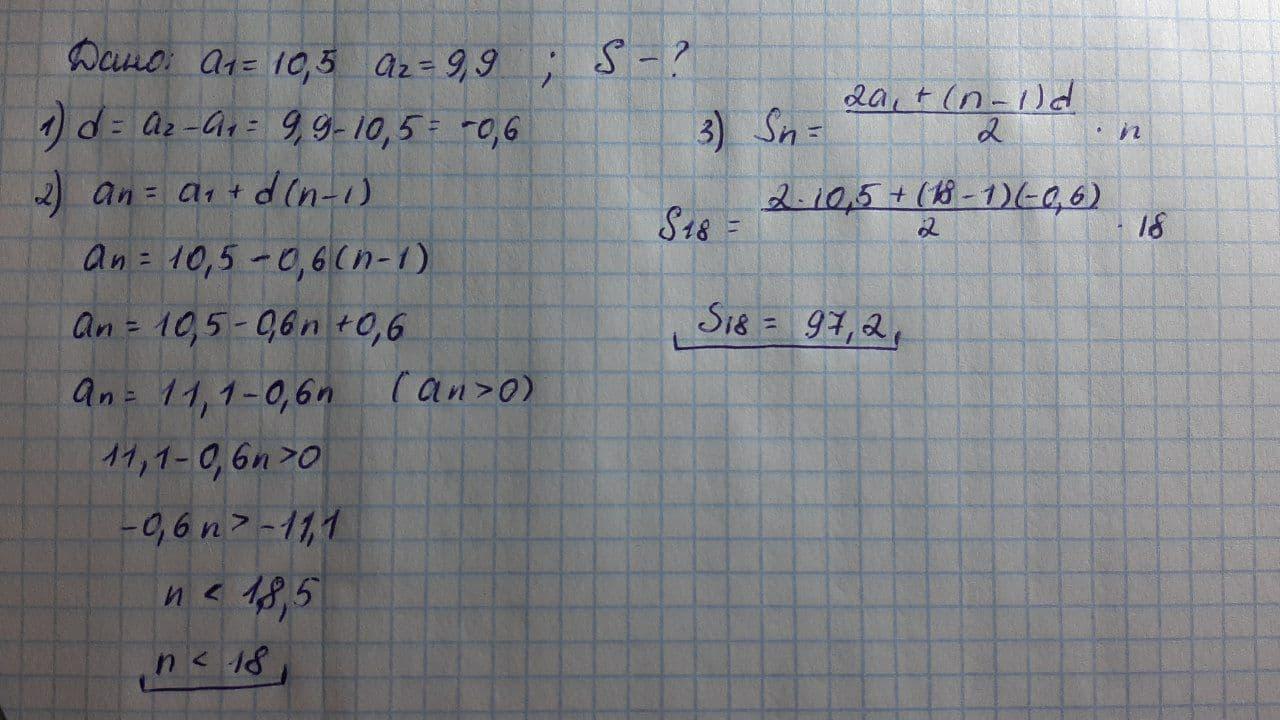 Дано: a1 = 10,5 a2 = 9,9 ; S - ?
1) d = a2 - a1 = 9,9 - 10,5 = -0,6
2) an = a1 + d(n-1)
an = 10,5 - 0,6(n-1)
an = 10,5 - 0,6n + 0,6
an = 11,1 - 0,6n (an > 0)
11,1 - 0,6n > 0
-0,6n > -11,1
n < 18,5
n < 18
3) Sn = (2a1 + (n-1)d)/2 · n
S18 = (2·10,5 + (18-1)(-0,6))/2 · 18
S18 = 97,2